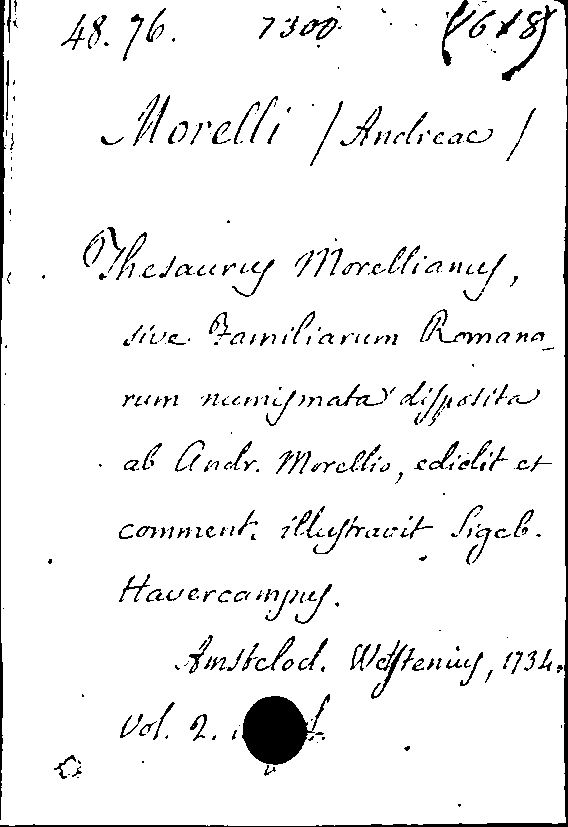 48. 76. 7300
Morelli / Andreae /
Thesaurus Morellianus,
sive Familiarum Romano-
rum numismata disposita
ab Andr. Morellio, edidit et
comment. illustravit Sigeb.
Havercampus.
Amstelod. Westenius, 1734.
Vol. 2.